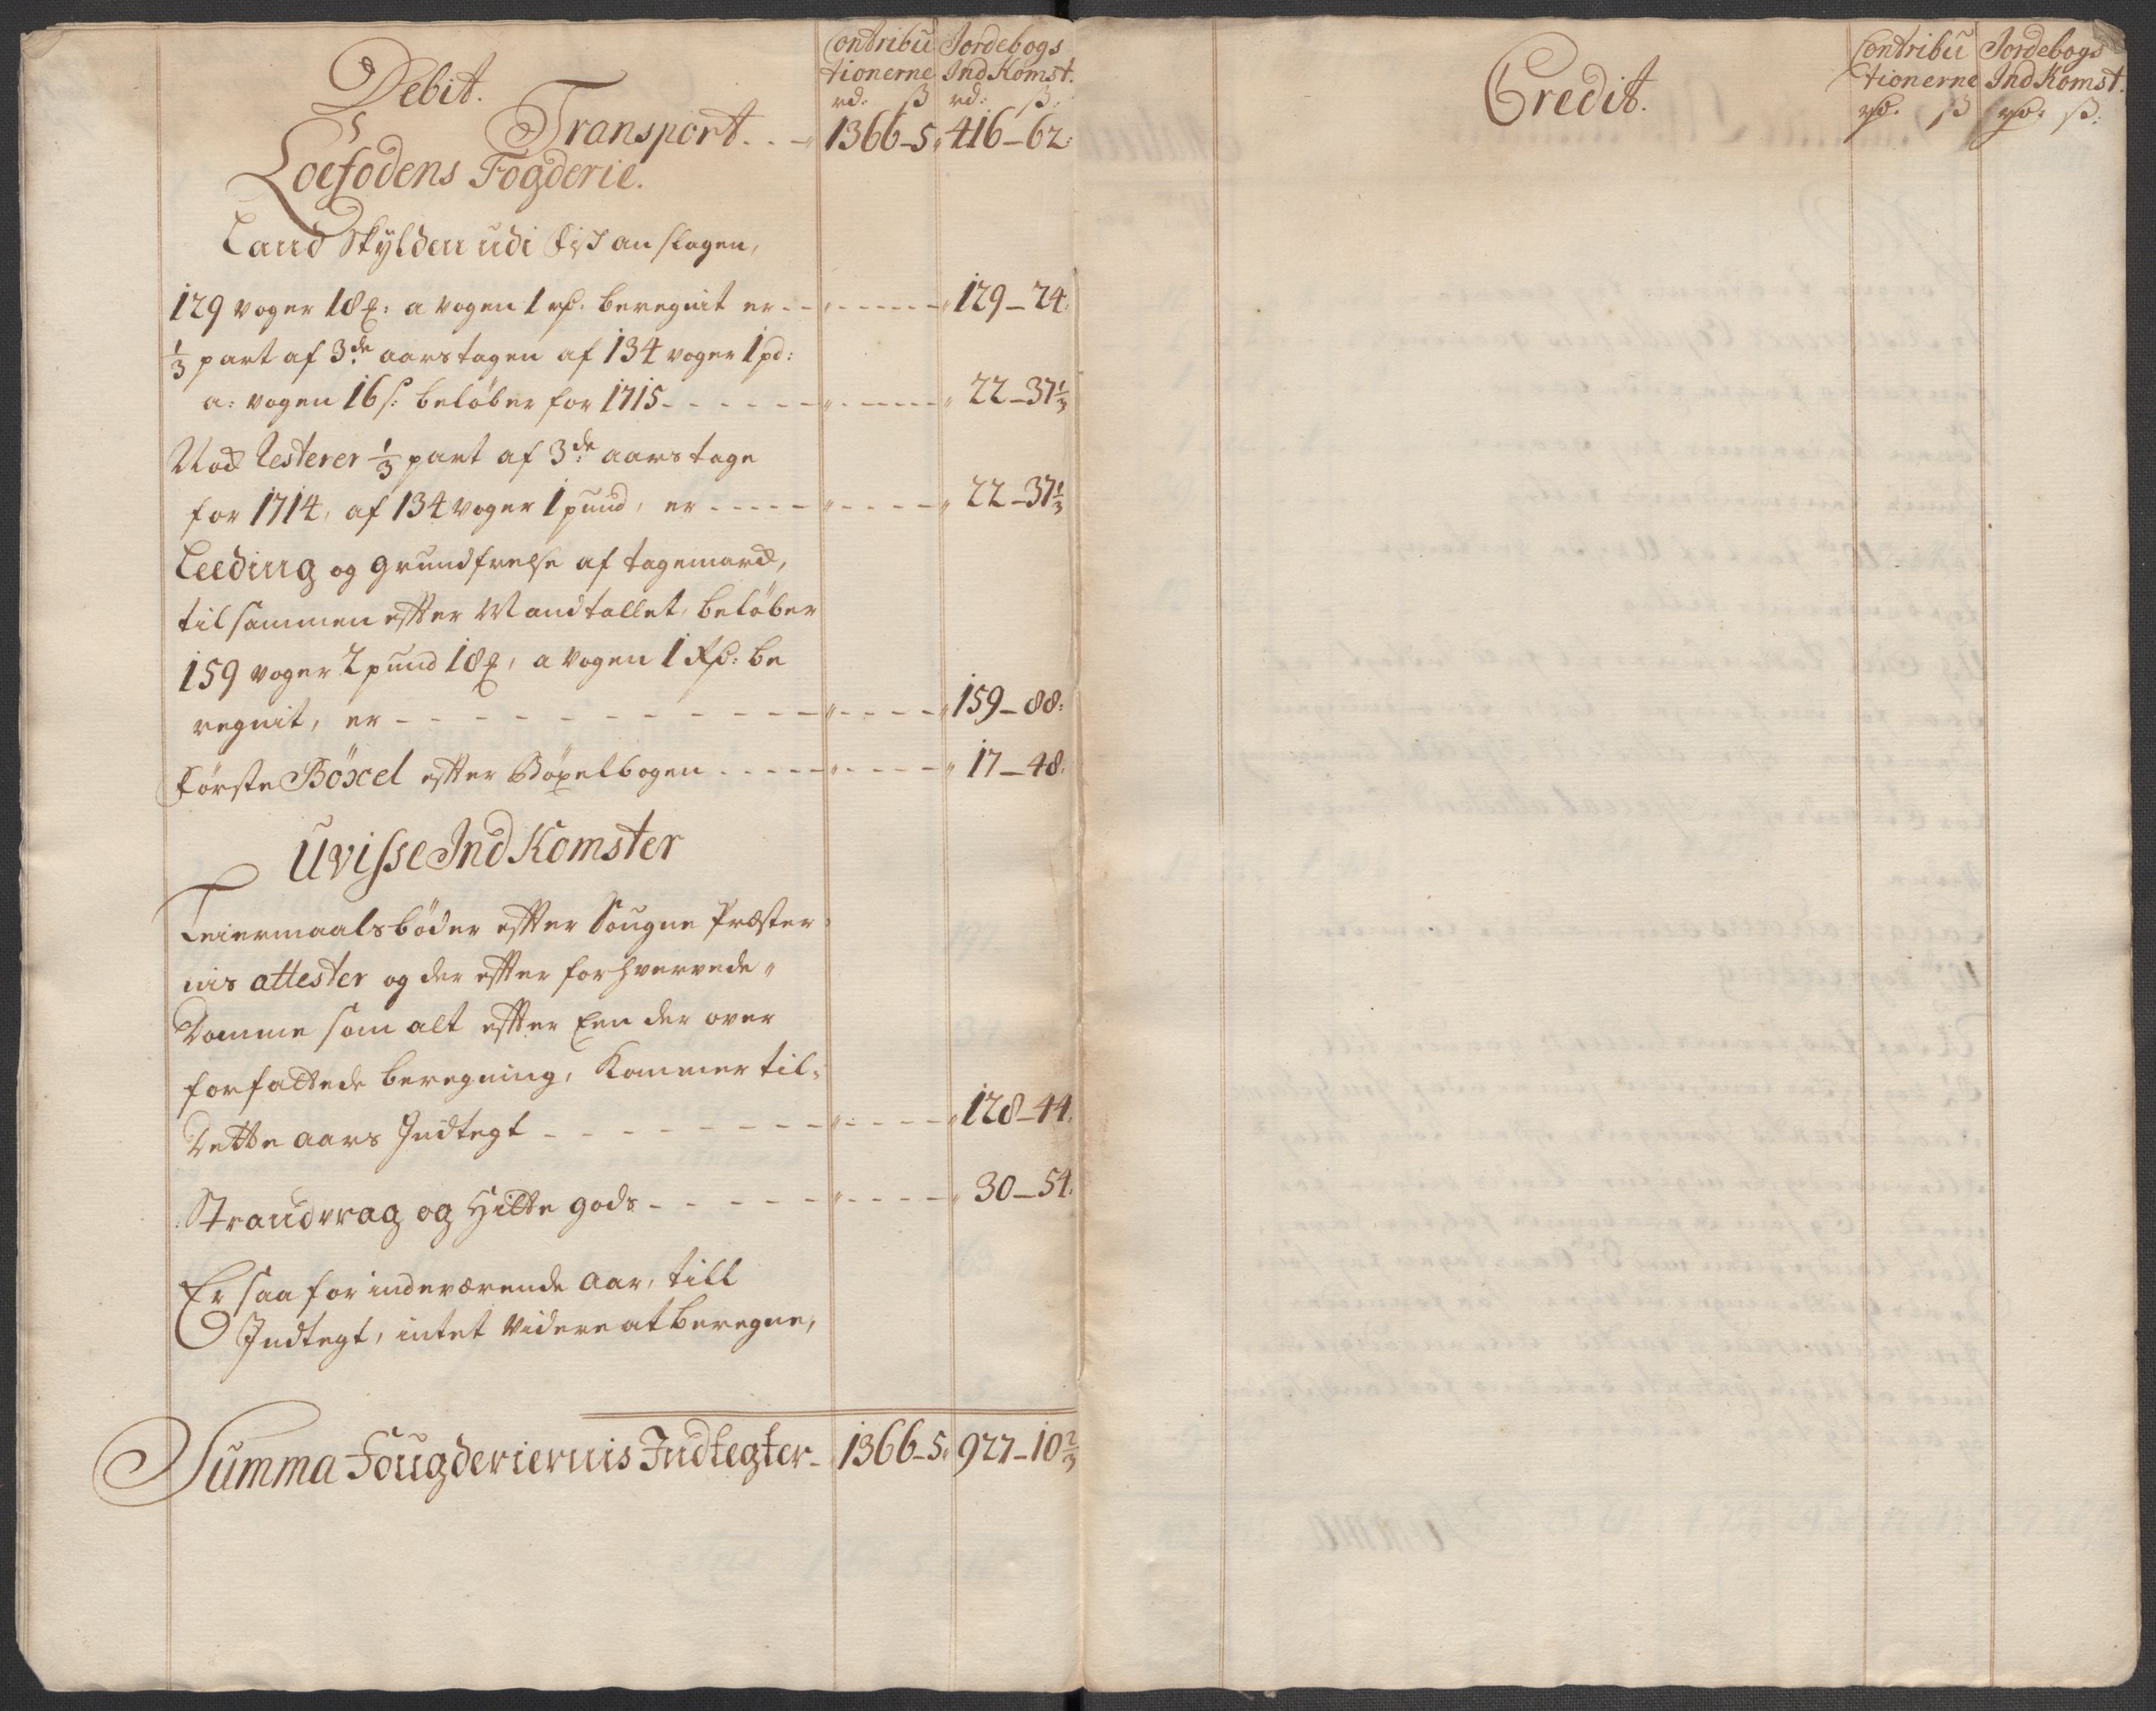 Debit.
Contribu
tionerne
rd: ß
Jordebogs
IndKomst.
rd: ß:
Transport. . - 1366-5. 416-62.
Loefodens Fogderie.
Land Skylden udi Fisk anslagen,
129 woger 18 ℔: a wogen 1 rd. beregnit er - - - 129-24.
1/3 part af 3de aarstagen af 134 woger 1 pd:
a: wogen 16 s: beløber for 1715 - - - 22-37 1/3
Nock Resterer 1/3 part af 3de aars tage
for 1714, af 134 woger 1 pund, er - - - 22-37 1/3
Leeding og grundfrelse af tagemarck,
tilsammen effter Mandtallet, beløber
159 woger 2 pund 18 ℔, a wogen 1 Rd: be
regnit, er - - - 159-88.
Første Böxel effter Böxelbogen - - - 17-48.
Uvisse IndKomster
Leiermaals bøder effter Sougne Præster
nis attester og der effter forhvervede
Domme som alt effter Een der over
forfattede beregning, Kommer til
Dette aars Indtegt - - - 128-44.
Strandvrag og Hitte gods - - - 30-54.
Er saa for indeværende Aar, till
Indtegt, intet Videre at beregne,
Summa Fougderiernis Indtegter - 1366-5. 927-10 2/3
Credit.
Contribu
tionerne
rd. ß
Jordebogs
IndKomst.
rd. ß: